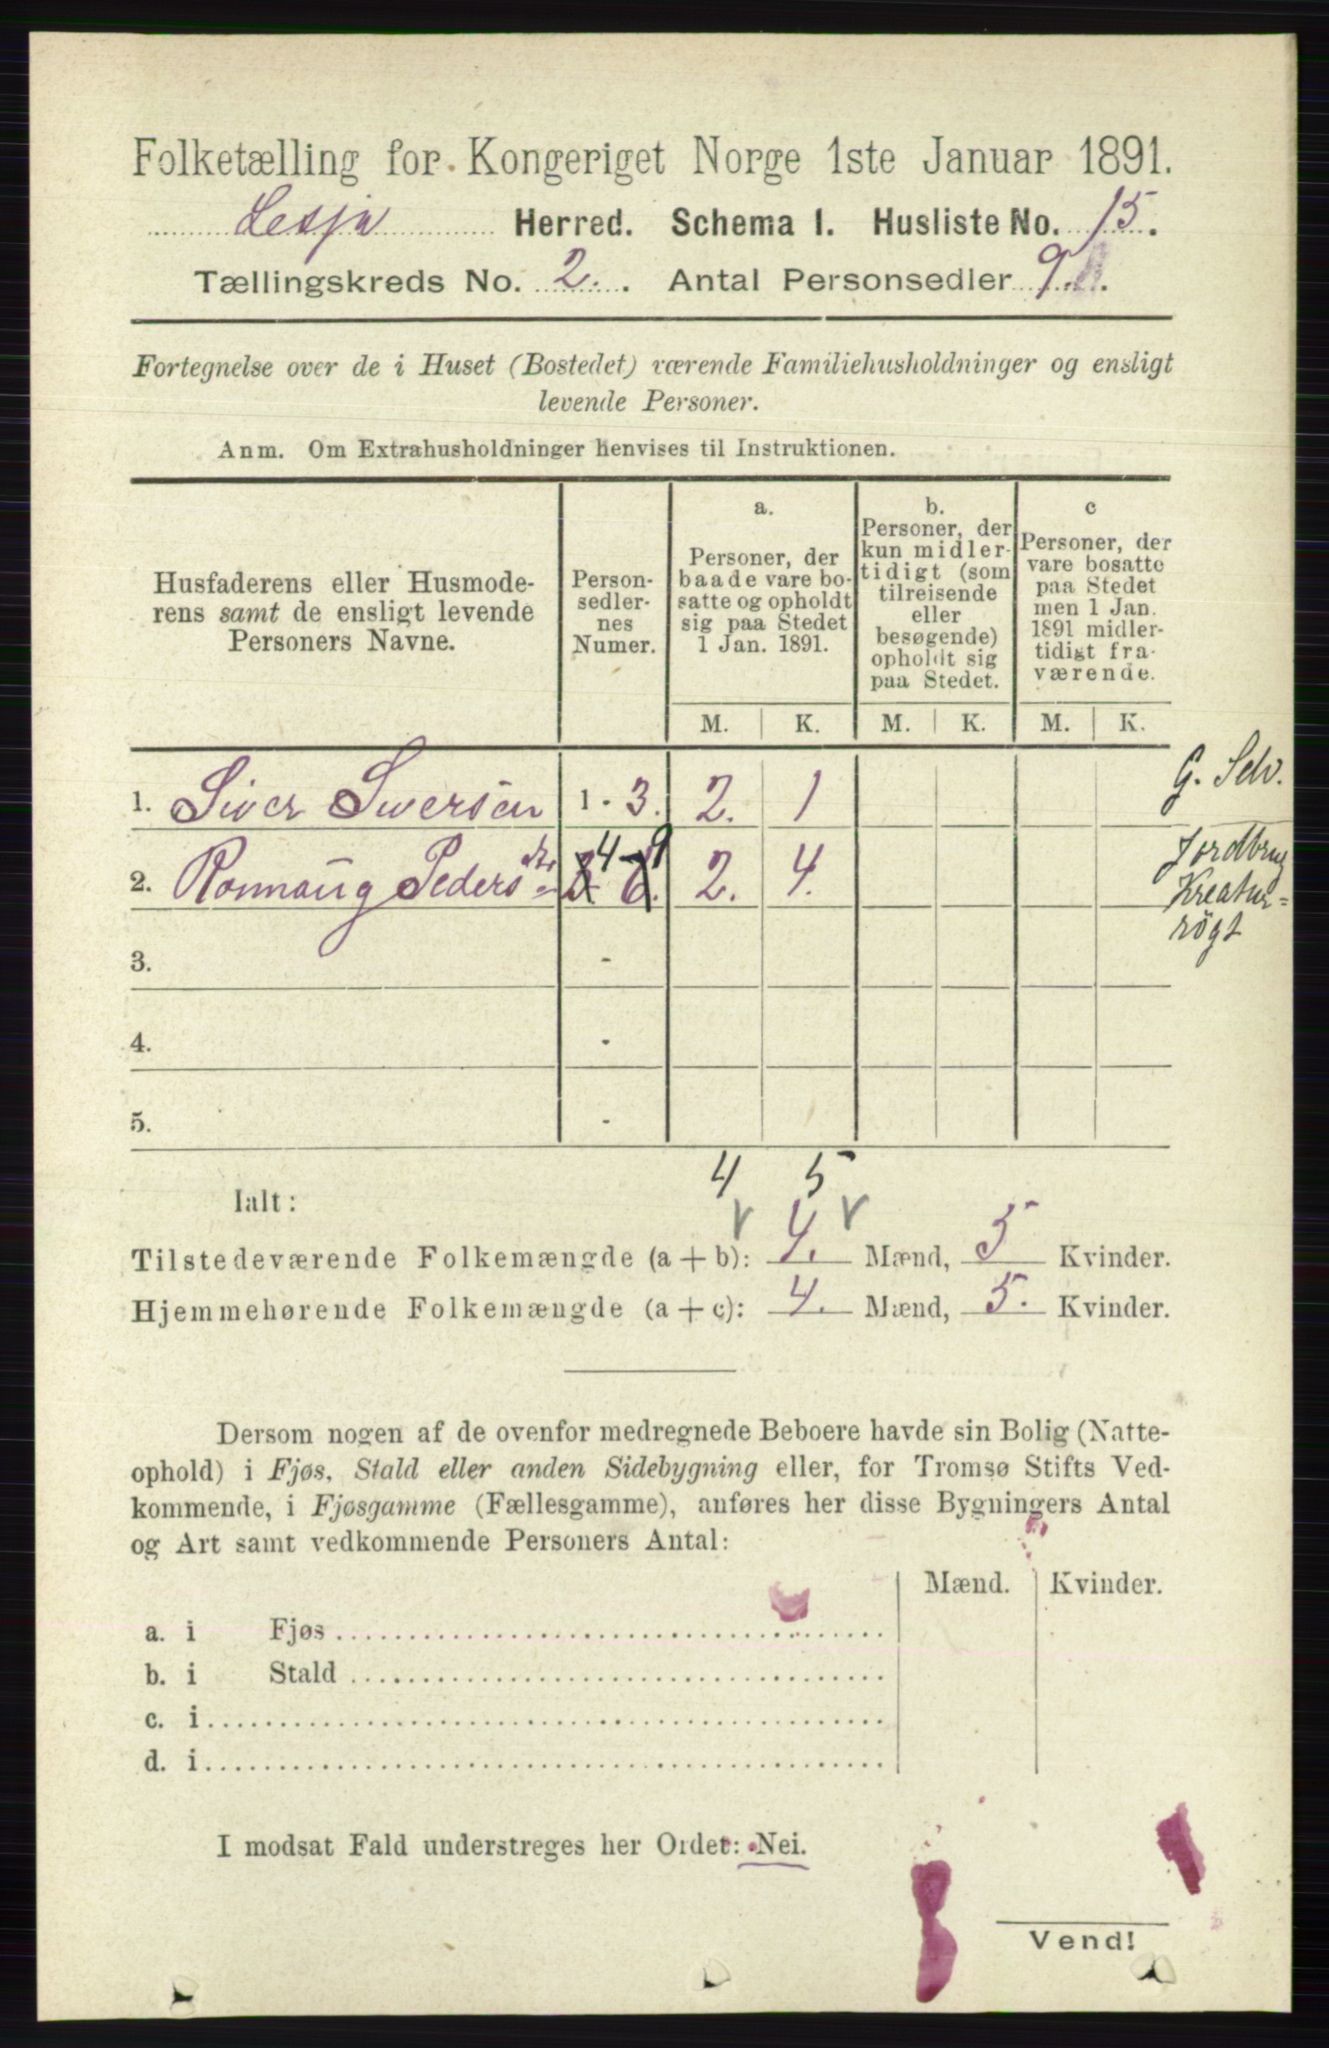 Folketælling for Kongeriget Norge 1ste Januar 1891.
Lesja Herred. Schema I. Husliste No. 15.
Tællingskreds No. 2. Antal Personsedler 9.
Fortegnelse over de i Huset (Bostedet) værende Familiehusholdninger og ensligt
levende Personer.
Anm. Om Extrahusholdninger henvises til Instruktionen.
Husfaderens eller Husmode-
rens samt de ensligt levende
Personers Navne.
Person-
sedler-
nes
Numer.
a.
Personer, der
baade vare bo-
satte og opholdt
sig paa Stedet
1 Jan. 1891.
b.
Personer, der
kun midler-
tidigt (som
tilreisende
eller
besøgende)
opholdt sig
paa Stedet.
c
Personer, der
vare bosatte
paa Stedet
men 1 Jan.
1891 midler-
tidigt fra-
værende.
M. K. M. K. M. K.
1. Siver Siversen 1 - 3. 2. 1
G. Selv.
2. Ronnaug Pedersdtr 4 9 2. 4.
Jordbrug
Kreatur=
røgt
3. -
4. -
5. -
4 5
Ialt:
Tilstedeværende Folkemængde (a + b): 4. Mænd, 5 Kvinder.
Hjemmehørende Folkemængde (a + c): 4. Mænd, 5. Kvinder.
Dersom nogen af de ovenfor medregnede Beboere havde sin Bolig (Natte-
ophold) i Fjøs, Stald eller anden Sidebygning eller, for Tromsø Stifts Ved-
kommende, i Fjøsgamme (Fællesgamme), anføres her disse Bygningers Antal
og Art samt vedkommende Personers Antal:
Mænd. Kvinder.
a. i Fjøs
b. i Stald
c. i
d. i
I modsat Fald understreges her Ordet: Nei.
Vend!